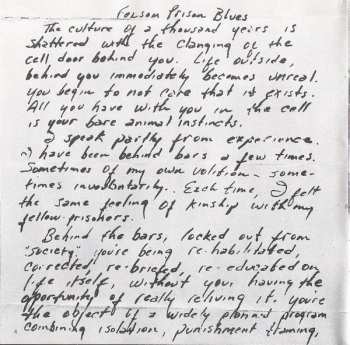 Folsom Prison Blues
The culture of a thousand years is
shattered with the clanging of the
cell door behind you. Life outside,
behind you immediately becomes unreal.
You begin to not care that it exists.
All you have with you in the cell
is your bare animal instincts.
I speak partly from experience.
I have been behind bars a few times.
Sometimes of my own volition - some-
times involuntarily. Each time, I felt
the same feeling of kinship with my
fellow prisoners.
Behind the bars, locked out from
"society," you're being re-habilitated,
corrected, re-briefed, re-educated on
life itself, without you having the
opportunity of really reliving it. You're
the object of a widely planned program
combining isolation, punishment training,